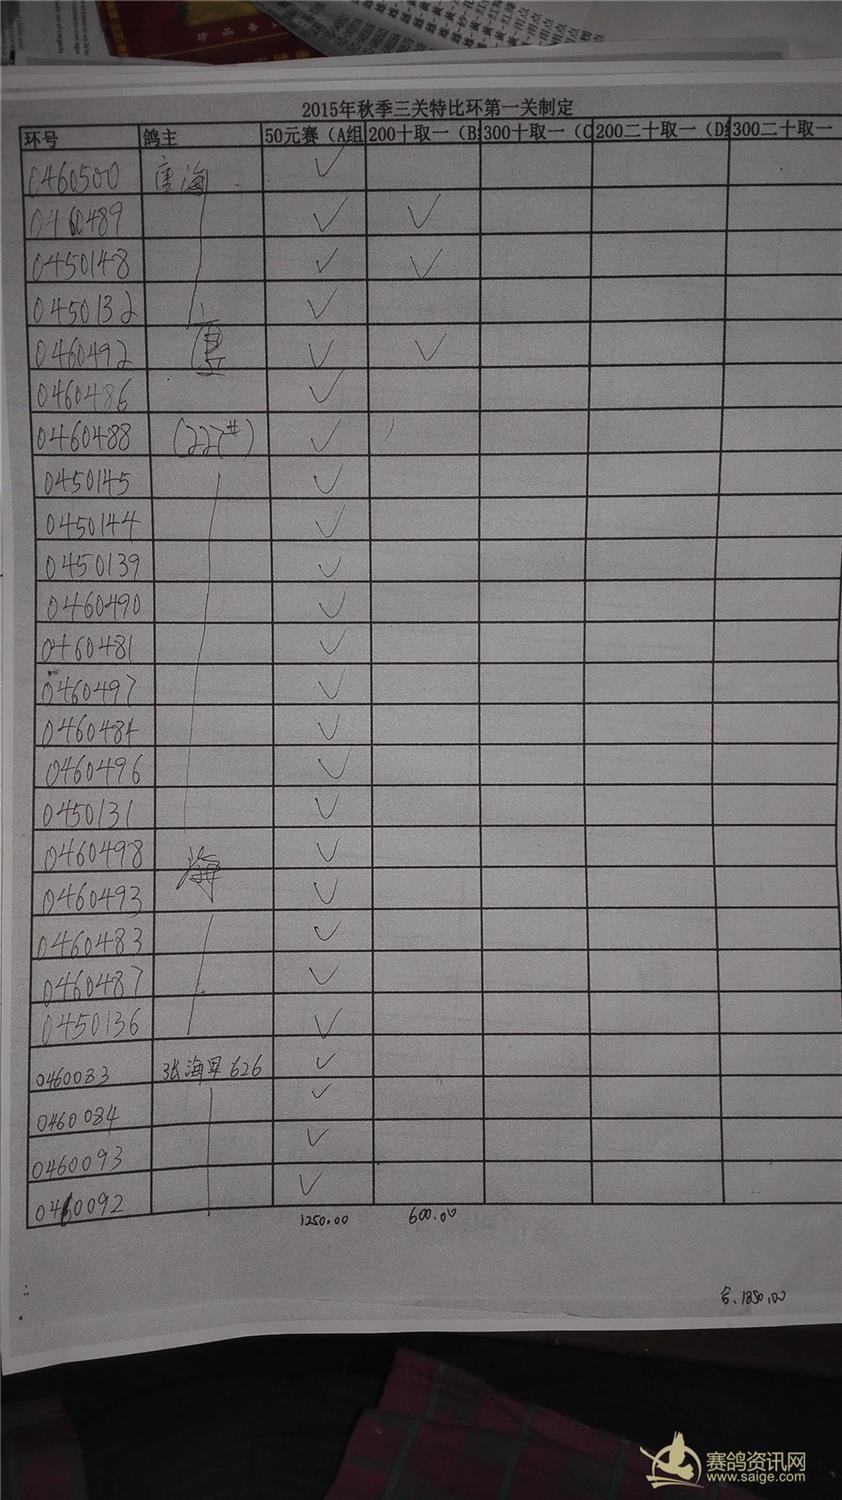 2015年秋季三关特比环第一关制定
环号 鸽主 50元赛（A组 200十取一（B 300十取一（C 200二十取一（D 300二十取一
0460500 唐海 ✓
0460489 ✓ ✓
0450148 ✓ ✓
0450132 ✓
0460492 ✓ ✓
0460486 ✓
0460488 (227#) ✓
0450145 ✓
0450144 ✓
0450139 ✓
0460490 ✓
0460481 ✓
0460497 ✓
0460484 ✓
0460496 ✓
0450131 ✓
0460498 海 ✓
0460493 ✓
0460483 ✓
0460487 ✓
0450136 ✓
0460083 张海军 626 ✓
0460084 ✓
0460093 ✓
0460092 ✓
1250.00 600.00
合.1850.00
赛鸽资讯网
www.saige.com